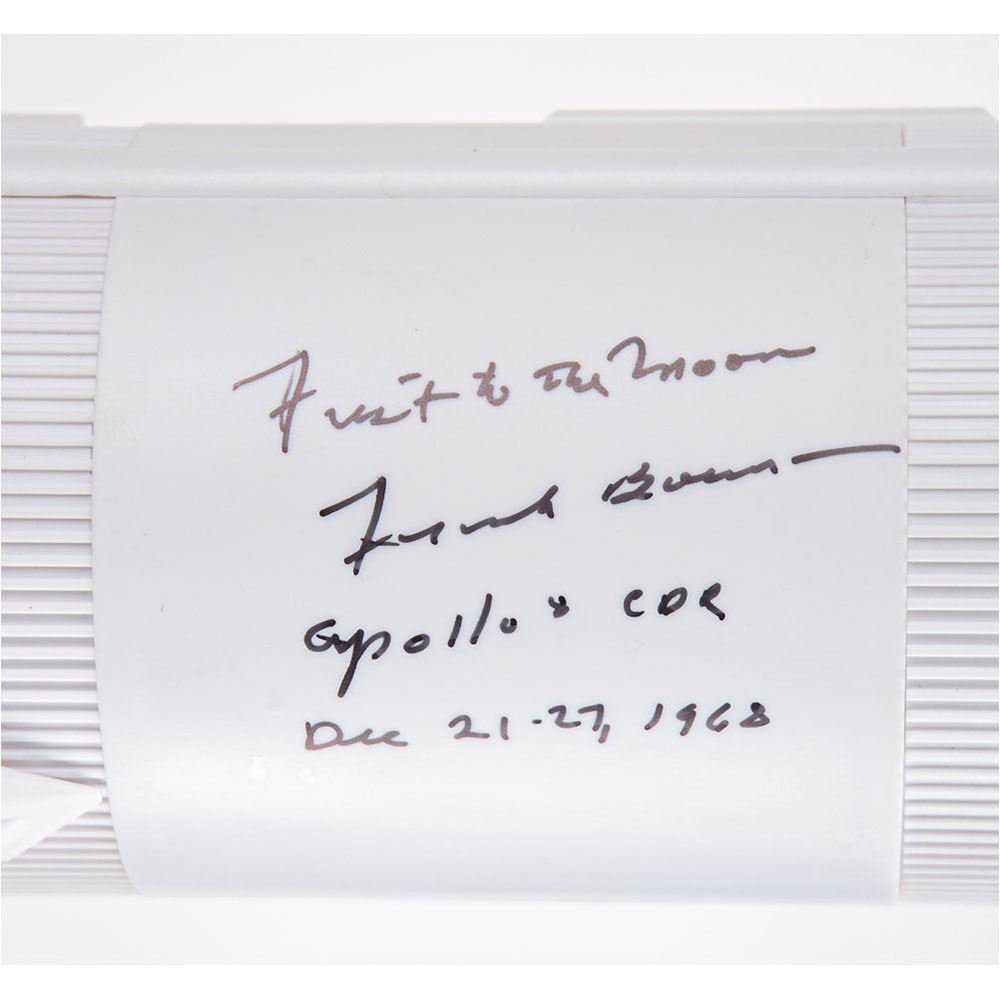 First to the Moon
Frank Borman
Apollo 8 CDR
Dec 21-27, 1968